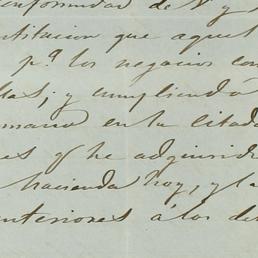 conformidad de N y
stitucion que aquel
pª los negocios con
llas; y cumpliendo
mano en la citada
es q he adquirid
hacienda hoy, y la
anteriores á los de